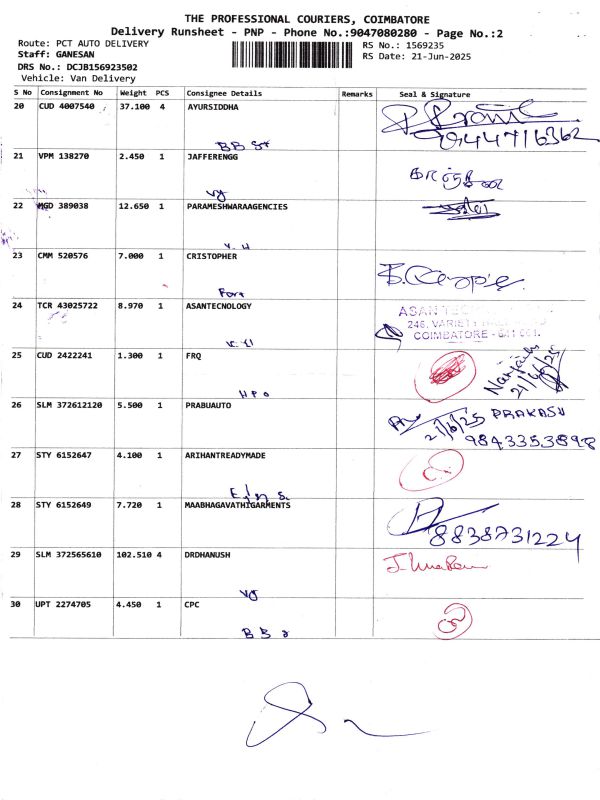 THE PROFESSIONAL COURIERS, COIMBATORE
Delivery Runsheet - PNP - Phone No.:9047080280 - Page No.:2
Route: PCT AUTO DELIVERY
RS No.: 1569235
Staff: GANESAN
RS Date: 21-Jun-2025
DRS No.: DCJB156923502
Vehicle: Van Delivery
S No Consignment No Weight PCS Consignee Details Remarks Seal & Signature
20 CUD 4007540 37.100 4 AYURSIDDHA
21 VPM 138270 2.450 1 JAFFERENGG
22 MGD 389038 12.650 1 PARAMESHWARAAGENCIES
23 CMM 520576 7.000 1 CRISTOPHER
Fort
24 TCR 43025722 8.970 1 ASANTECNOLOGY
ASAN
COIMBATORE - 641 001.
25 CUD 2422241 1.300 1 FRQ
21/6/25
HPO
26 SLM 372612120 5.500 1 PRABUAUTO
21/6/25 PRAKASH
9843353898
27 STY 6152647 4.100 1 ARIHANTREADYMADE
28 STY 6152649 7.720 1 MAABHAGAVATHIGARMENTS
8838731224
29 SLM 372565610 102.510 4 DRDHANUSH
30 UPT 2274705 4.450 1 CPC